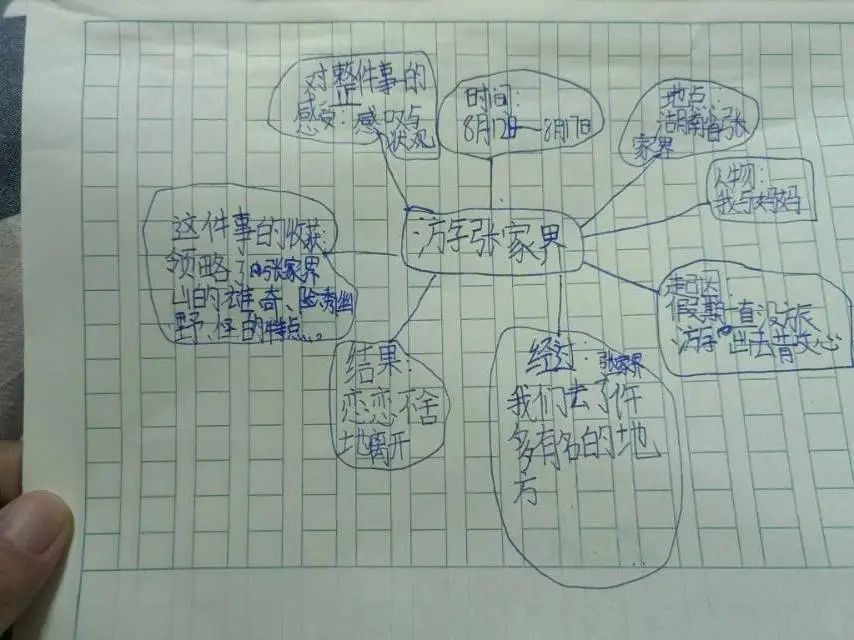 对整件事的
感受:感叹与
状观
时间:
8月12日—8月17日
地点:
湖南省张
家界
人物:
我与妈妈
游张家界
这件事的收获:
领略了张家界
山的雄奇、险秀幽
野、的特点。
起因
假期一直没旅
游 出去
结果:
恋恋不舍
地离开
经过:张家界
我们去了许
多有名的地
方